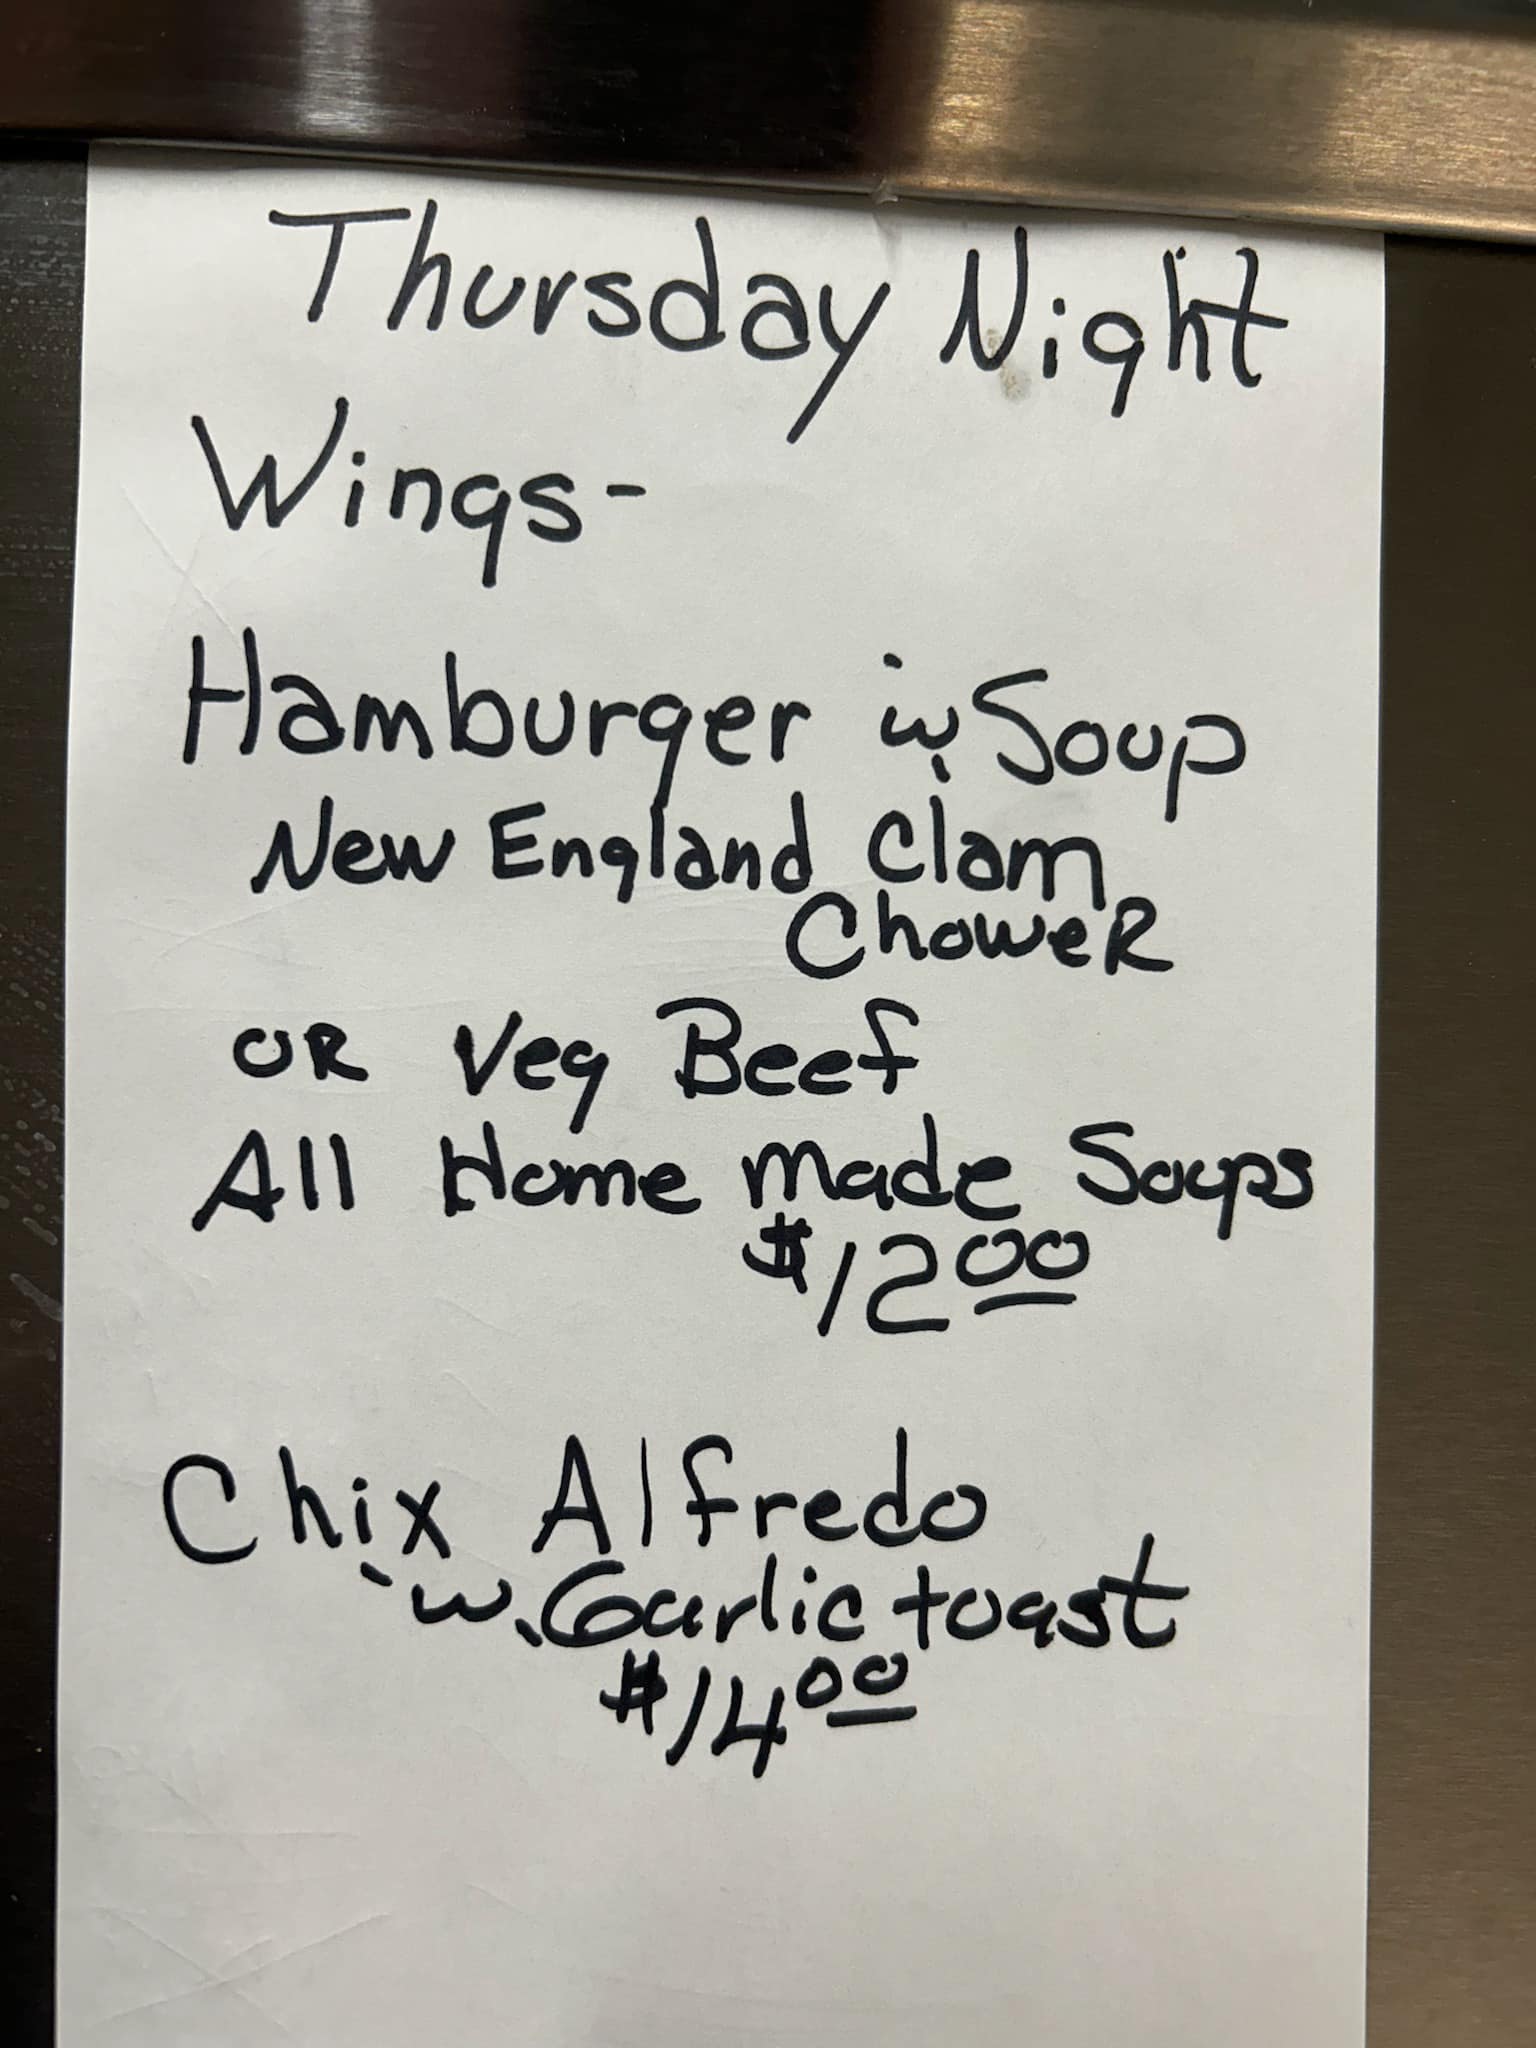 Thursday Night
Wings-
Hamburger w. Soup
New England Clam
ChoweR
OR Veg Beef
All Home made Soups
$12.00
Chix Alfredo
w. Garlic toast
$14.00